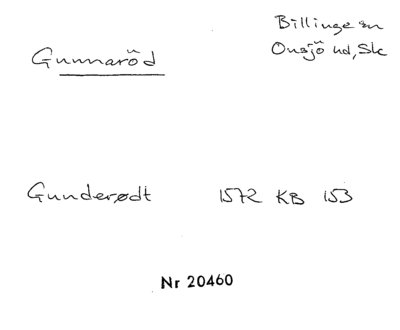 Billinge sn
Gunnaröd
Onsjö hd, Sk
Gunderødt 1572 KB 153
Nr 20460